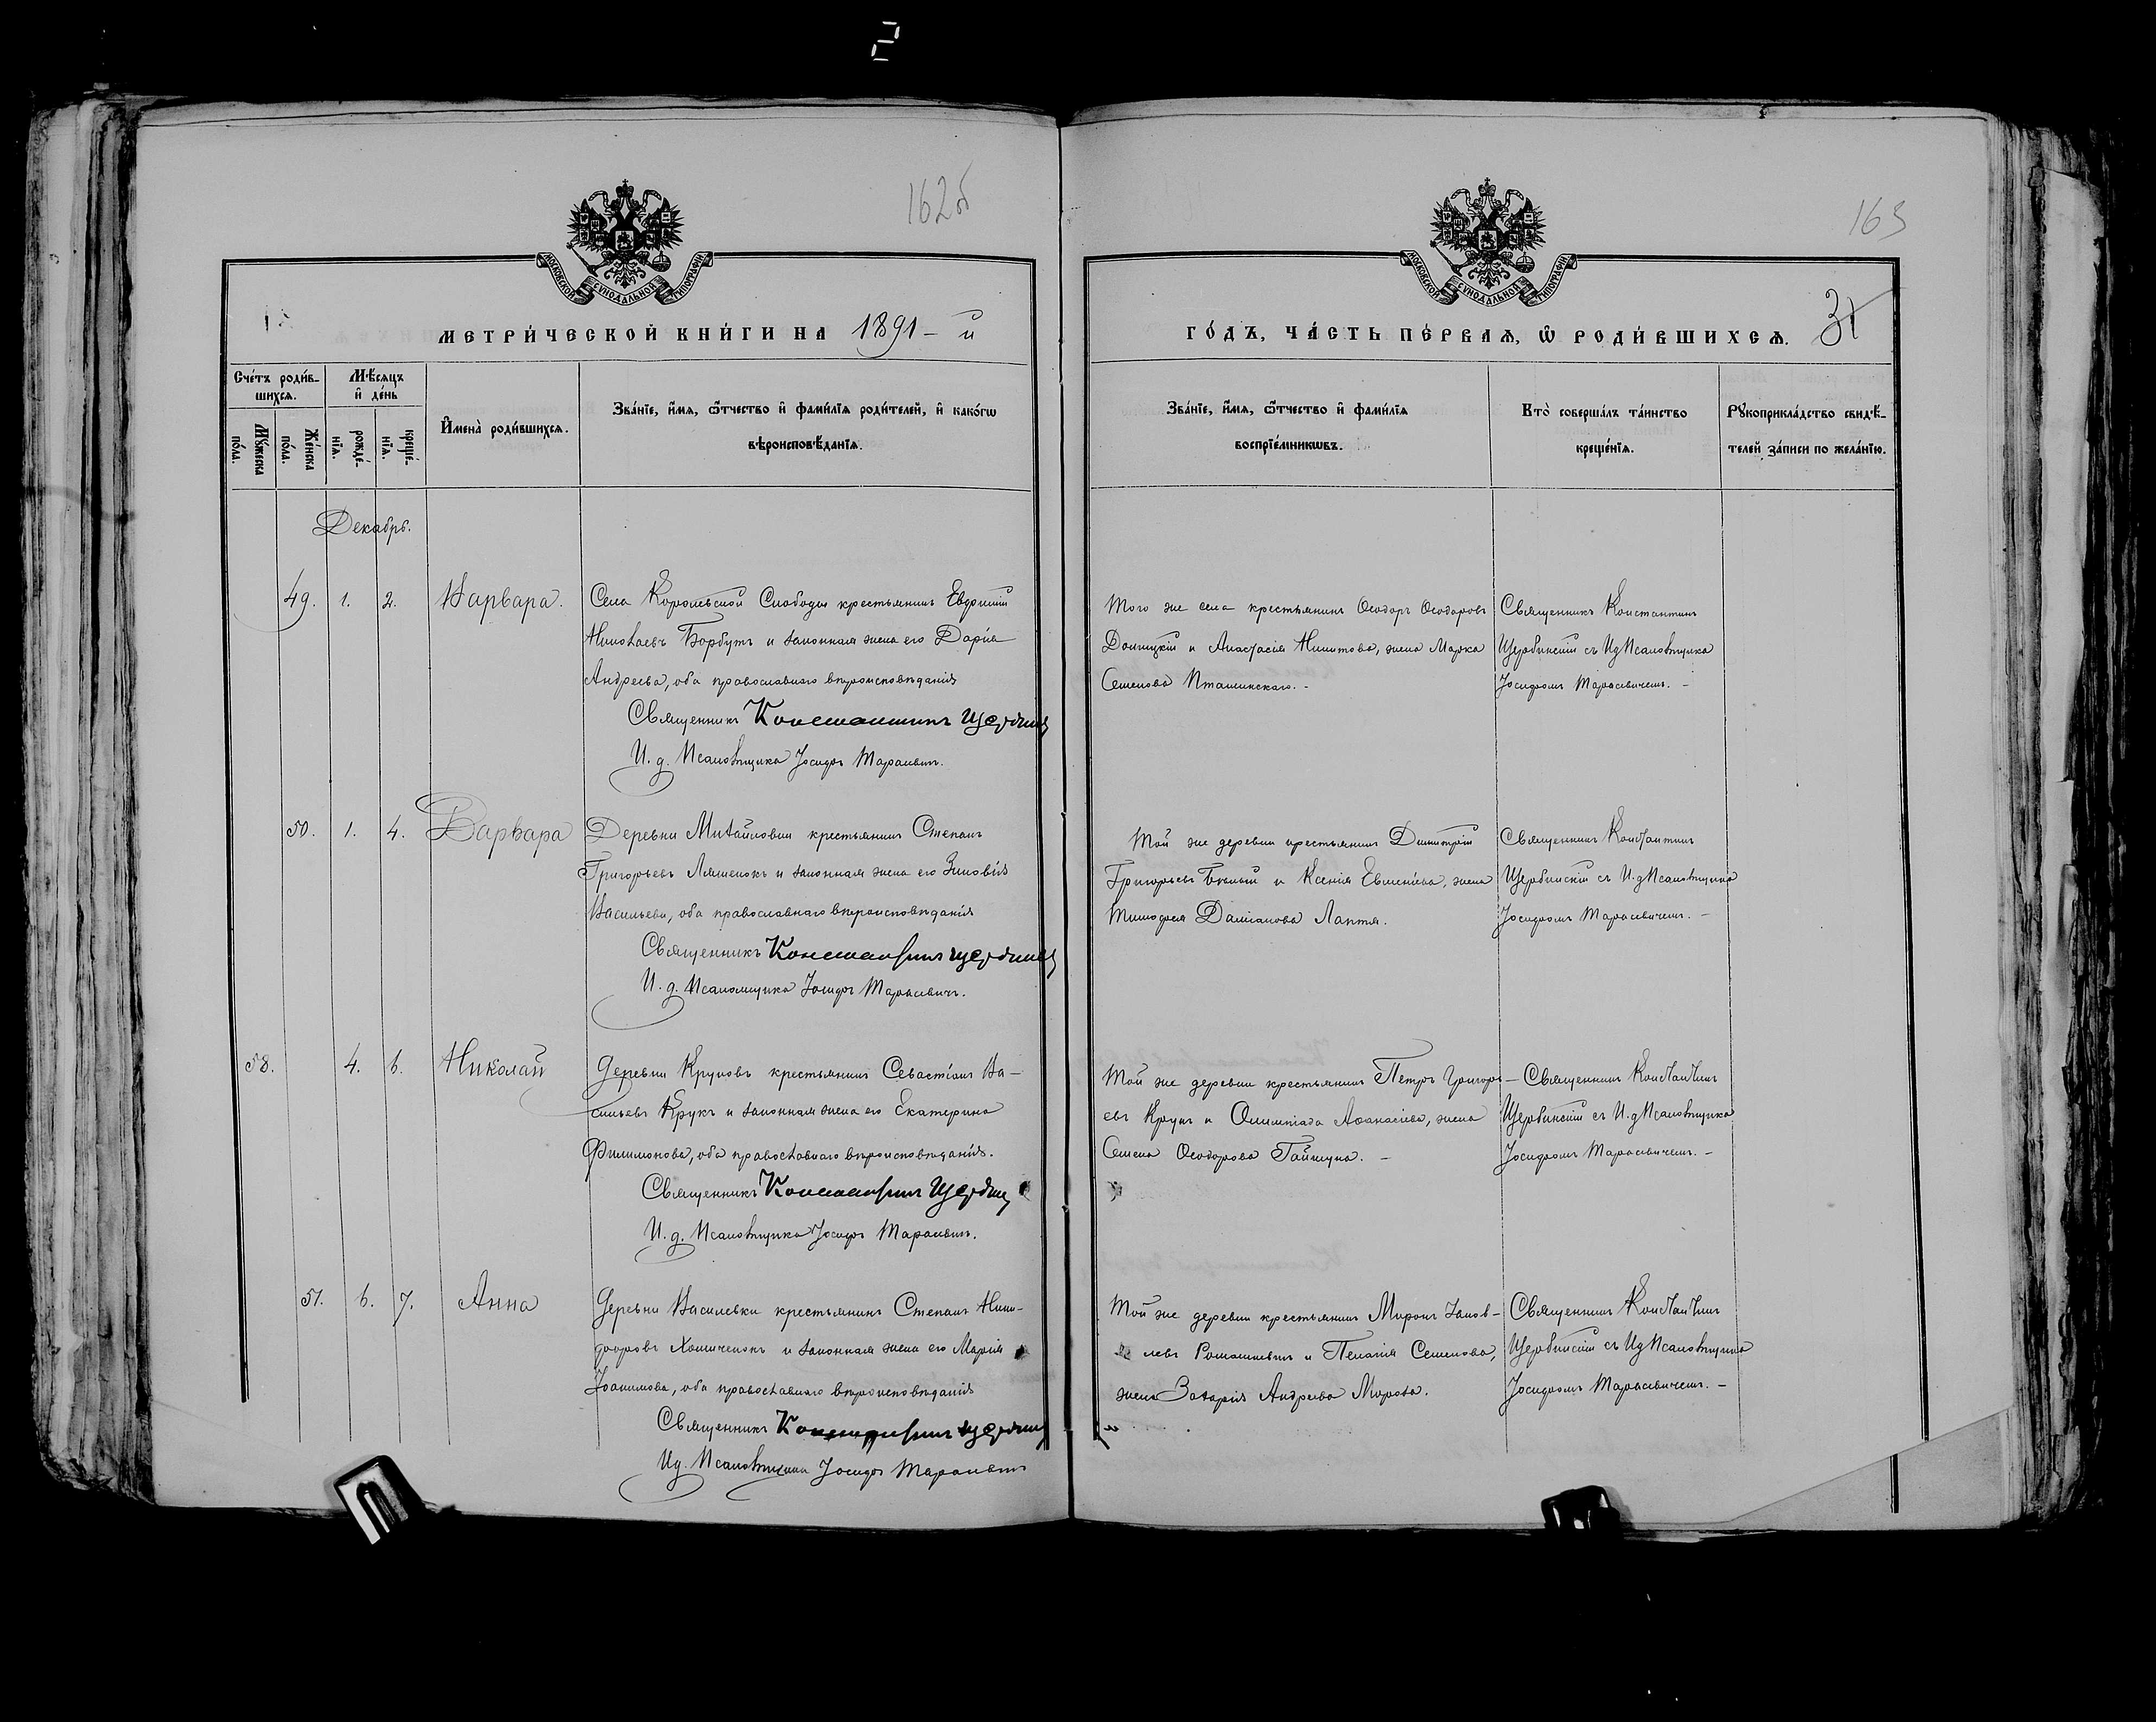 2
162об
163
МОСКОВСКОЙ СѴНОДАЛЬНОЙ ТИПОГРАФІИ
МОСКОВСКОЙ СѴНОДАЛЬНОЙ ТИПОГРАФІИ
МЕТРИ́ЧЕСКОЙ КНИ́ГИ НА 1891 – й
ГО́ДЪ, ЧА́СТЬ ПЕ́РВАЯ, Ѡ҆ РОДИ́ВШИХСЯ. 31
Сче́тъ роди́в-
шихся.
Мѣ́сяцъ
и҆ де́нь
Мꙋ́жеска
по́ла.
Же́нска
по́ла.
рожде́-
нїя.
креще́-
нїя.
И҆мена̀ роди́вшихся.
Зва́нїе, и҆́мя, ѻ҆́тчество и҆ фами́лїя роди́телей, и҆ како́гѡ
вѣроисповѣ́данїя.
Зва́нїе, и҆́мя, ѻ҆́тчество и҆ фами́лїя
воспрїе́мникѡвъ.
Кто̀ соверша́лъ та́инство
креще́нїя.
Рꙋкоприкла́дство свидѣ́-
телей за́писи по жела́нїю.
Декабрь.
49. 1. 2. Варвара.
Села Корольской Слободы крестьянинъ Евфимій
Николаевъ Борбутъ и законная жена его Дарія
Андреева, оба православнаго вѣроисповѣданія
Священникъ Константинъ Щербин
И. д. Псаломщика Іосифъ Тарасевич.
Того же села крестьянинъ Ѳеодоръ Ѳеодоровъ
и Анастасія Никитова, жена Марка
Семенова Пташинскаго. -
Священникъ Константинъ
Щербинскій съ И д Псаломщика
Іосифомъ Тарасевичемъ. -
50. 1. 4. Варвара
Деревни Михайловки крестьянинъ Степанъ
Григорьевъ Ляшенокъ и законная жена его Зиновія
Васильева, оба православнаго вѣроисповѣданія
Священникъ Константинъ Щербинск
И. д. Псаломщика Іосифъ Тарасевичъ.
Той же деревни крестьянинъ Димитрій
Григорьевъ Бѣлый и Ксенія Евменіева, жена
Тимофея Даміанова Лаптя.
Священникъ Константинъ
Щербинскій съ И. д Псаломщика
Іосифомъ Тарасевичемъ. -
58. 4. 6. Николай
Деревни Круковъ крестьянинъ Севастіанъ Ва-
сильевъ Крукъ и законная жена его Екатерина
Филимонова, оба православнаго вѣроисповѣданія.
Священникъ Константинъ Щербин
И. д. Псаломщика Іосифъ Тарасевич.
Той же деревни крестьянинъ Петръ Григорь-
евъ Крукъ и Олимпіада Аѳанасіева, жена
Семена Ѳеодорова Гайшуна. -
Священникъ Константинъ
Щербинскій съ И. д Псаломщика
Іосифомъ Тарасевичемъ. -
51. 6. 7. Анна
Деревни Василевки крестьянинъ Степанъ Ники-
форовъ Хомиченокъ и законная жена его Марія
Іоакимова, оба православнаго вѣроисповѣданія
Священникъ Константинъ Щербин
И д. Псаломщика Іосифъ Тарасевич
Той же деревни крестьянинъ Миронъ Іаков-
левъ Ромашкевичъ и Пелагія Семенова,
жена Захарія Андреева Мороза.
Священникъ Константинъ
Щербинскій съ И д Псаломщика
Іосифомъ Тарасевичемъ. -